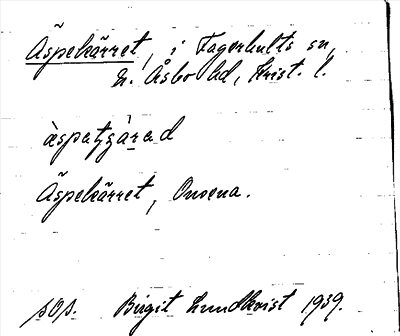 Äspekärret, i Fagerhults sn,
N. Åsbo hd, Krist. l.
Äspekärret, Onsena.
sOp. Birgit Lundkvist 1939.